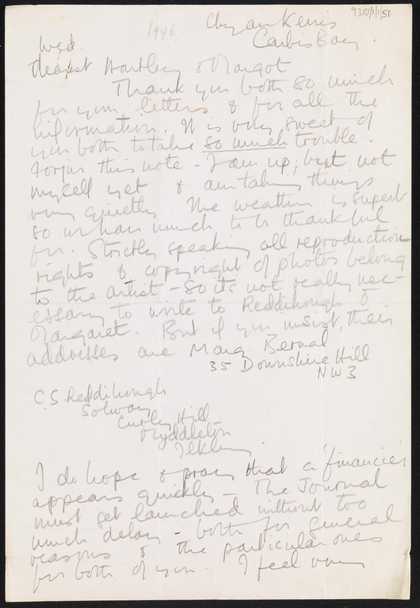 9310/1/1/51
1946
Chy an Kerris
Carbis Bay.
Wed.
Dearest Hartley & Margot
Thank you both so much
for your letters & for all the
information. It is very sweet of
you both to take so much trouble.
Forgive this note - I am up, but not
myself yet & am taking things
very quietly. The weather is superb
so we have much to be thankful
for. Strictly speaking all reproduction
rights & copyright of photos belong
to the artist - so its not really nec-
essary to write to Reddihough &
Margaret. But if you insist, their
addresses are Marg Bernal
35 Downshire Hill
NW3
C.S. Reddihough
Solway
Curly Hill
Myddleton
Ilkley
I do hope & pray that a 'financier'
appears quickly - The Journal
must get launched without too
much delay - both for general
reasons & the particular ones
for both of you. I feel very